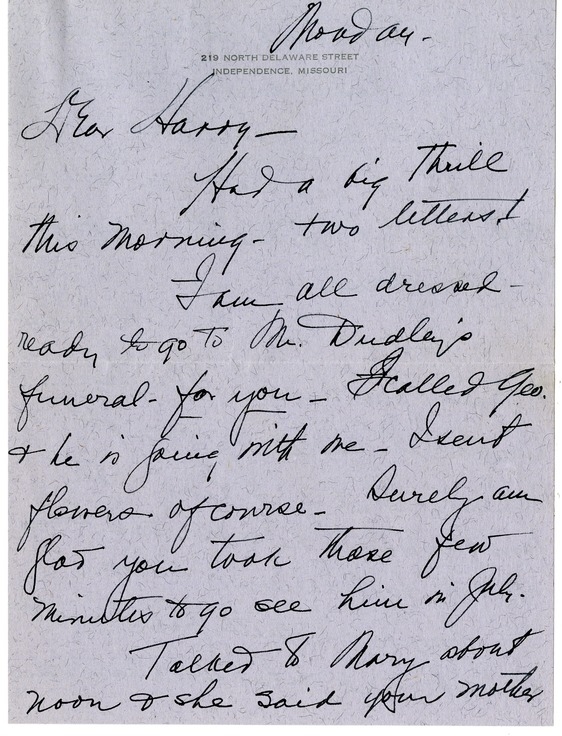 Monday.
219 NORTH DELAWARE STREET
INDEPENDENCE, MISSOURI
Dear Harry—
Had a big thrill
this morning - two letters!
I am all dressed -
ready to go to Mr. Dudley's
funeral - for you - I called Geo.
& he is going with me - I sent
flowers of course - Surely am
glad you took those few
minutes to go see him in July.
Talked to Mary about
noon & she said your mother